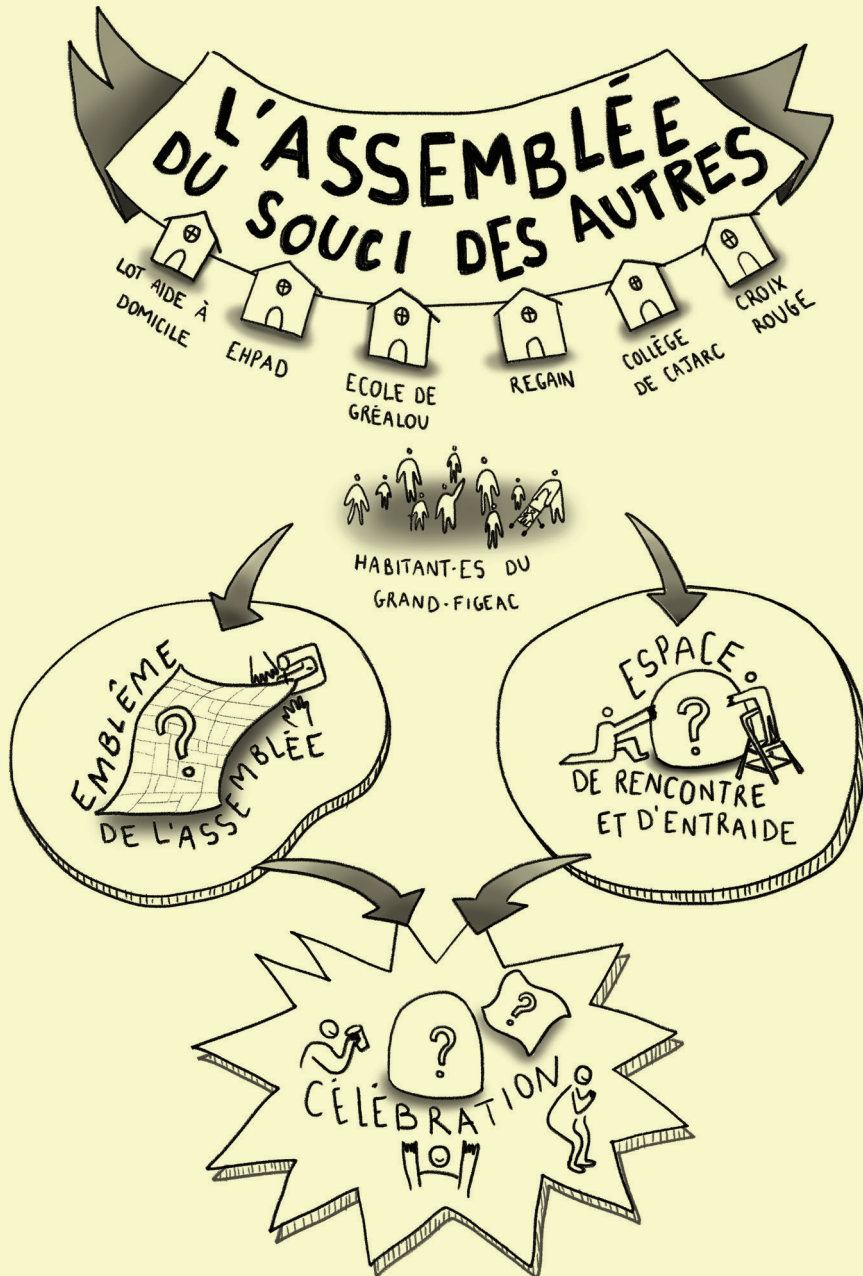 L'ASSEMBLÉE
DU SOUCI DES AUTRES
LOT AIDE À
DOMICILE
EHPAD
ECOLE DE
GRÉALOU
REGAIN
COLLÈGE
DE CAJARC
CROIX
ROUGE
HABITANT·ES DU
GRAND-FIGEAC
EMBLÊME
?
DE L'ASSEMBLÉE
ESPACE
?
DE RENCONTRE
ET D'ENTRAIDE
?
?
CÉLÉBRATION